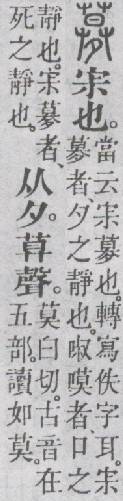 𡖶宋也。
當云宋𡖶也。轉寫佚字耳。宋
𡖶者、夕之靜也。㖡嗼者、口之
靜也。宋𡖶者、
死之靜也。
从夕。莫聲。
莫白切。古音在
五部。讀如莫。